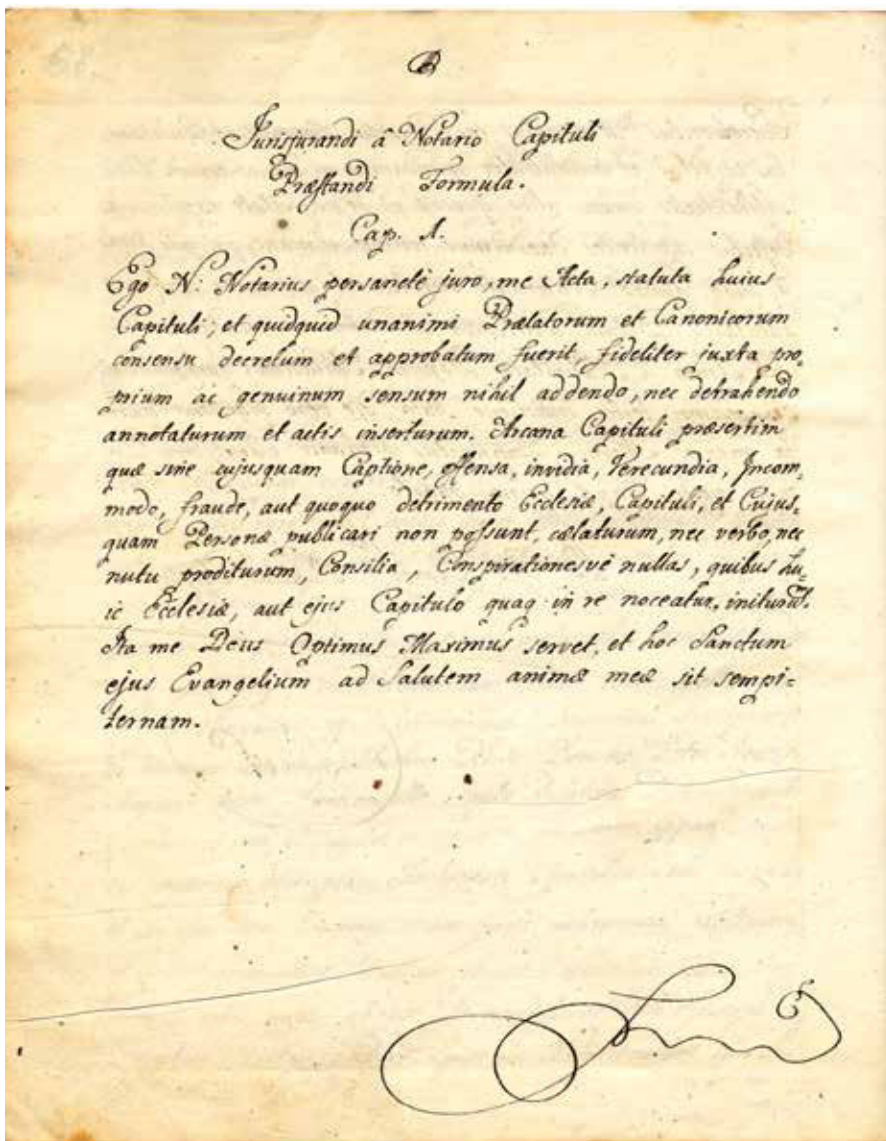 Jurisjurandi â Notario Capituli
Præstandi Formula.
Cap. 1.
Ego N: Notarius persanctè juro, me Acta, statuta huius
Capituli; et quidquid unanimi Prælatorum et Canonicorum
consensu decretum et approbatum fuerit, fideliter iuxta pro,
prium ac genuinum sensum nihil addendo, nec detrahendo
annotaturum et actis inserturum. Arcana Capituli præsertim
quæ sine cujusquam Captione, offensa, invidia, Verecundia, Incom,
modo, fraude, aut quoquo detrimento Ecclesiæ, Capituli, et Cujus,
quam Personæ publicari non possunt, cælaturum, nec verbo, nec
nutu proditurum, Consilia, Conspirationesvè nullas, quibus hu,
ic Ecclesiæ, aut ejus Capitulo quaq in re noceatur, initurum.
Ita me Deus Optimus Maximus servet, et hoc Sanctum
ejus Evangelium ad Salutem animæ meæ sit sempi=
ternam.